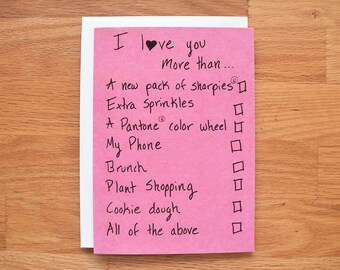 I l♥ve you
more than...
A new pack of sharpies®
Extra Sprinkles
A Pantone® color wheel
My Phone
Brunch
Plant Shopping
Cookie dough
All of the above